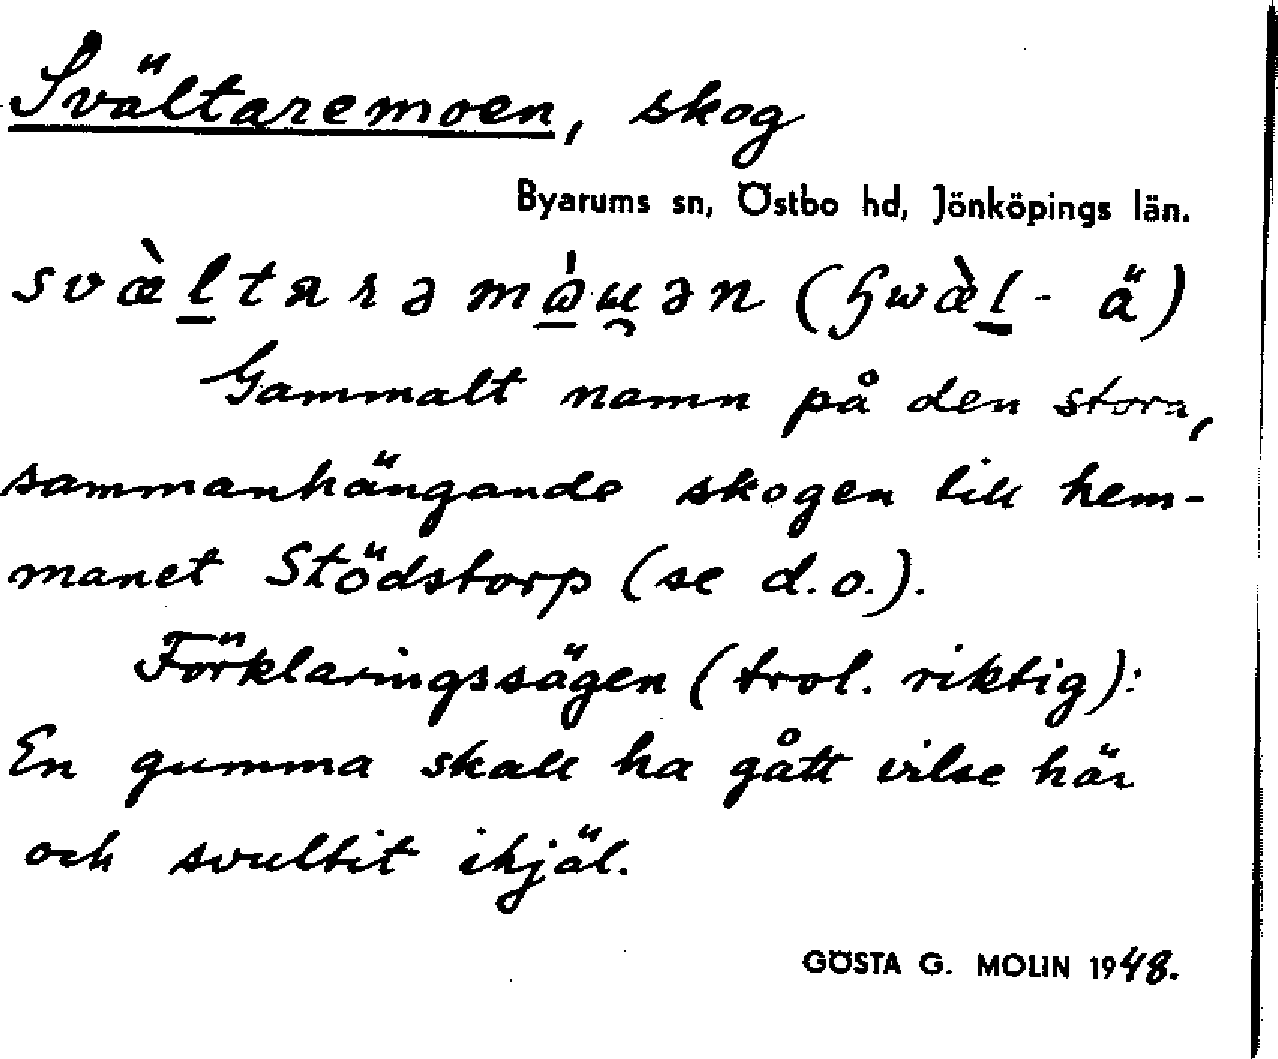 Svältaremoen, skog
Byarums sn, Östbo hd, Jönköpings län.
Gammalt namn på den stora,
sammanhängande skogen till hem-
manet Stödstorp (se d.o.).
Förklaringssägen (trol. riktig):
En gumma skall ha gått vilse här
och svultit ihjäl.
GÖSTA G. MOLIN 1948.